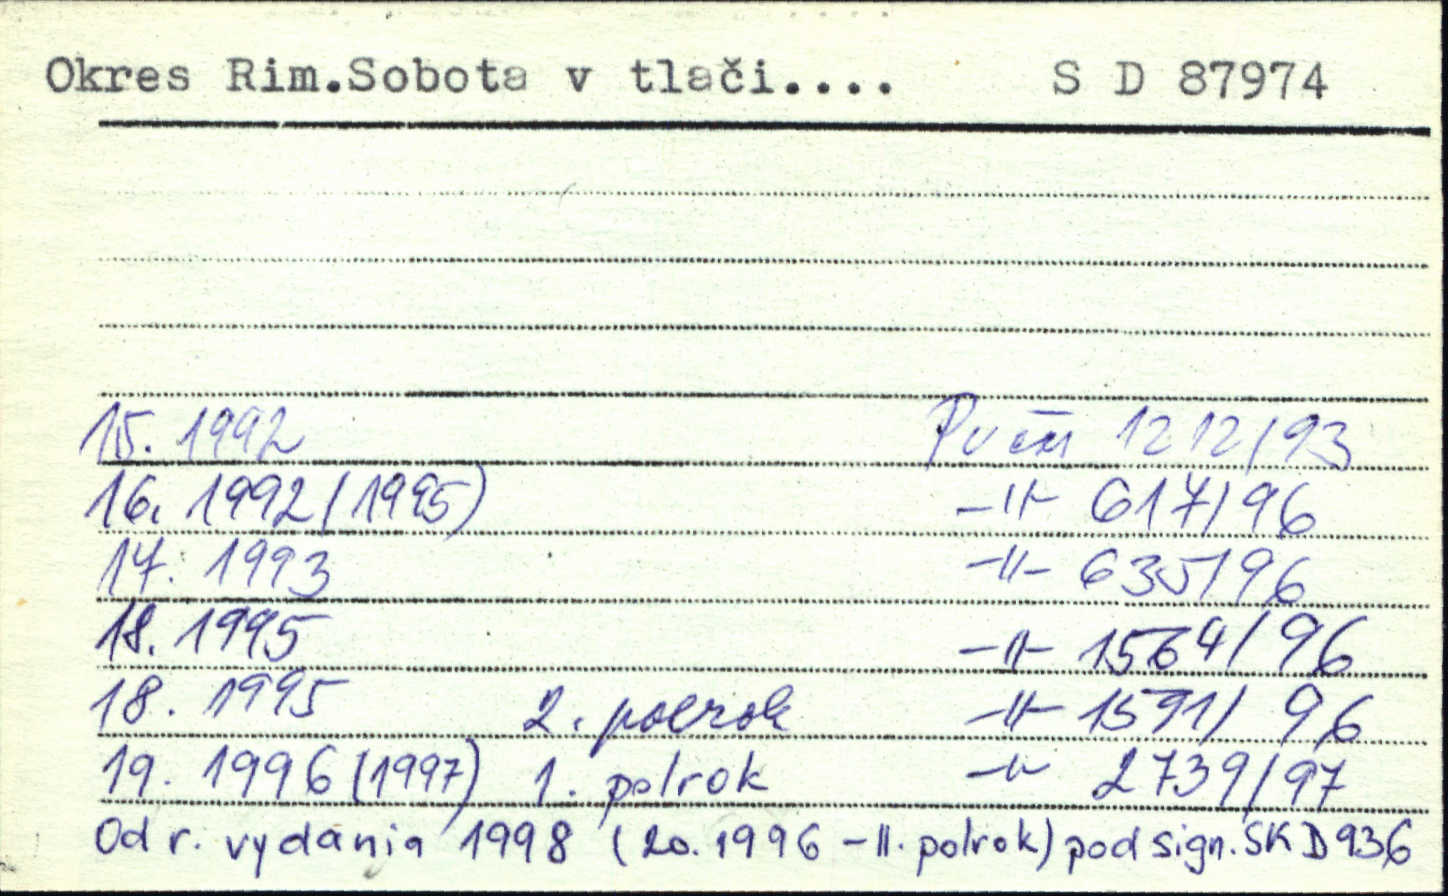 Okres Rim.Sobota v tlači.... S D 87974
15. 1992 1212/93
16. 1992 (1995) -II- 617/96
17. 1993 -II- 635/96
18. 1995 -II- 1564/96
18. 1995 2. polrok -II- 1591/96
19. 1996 (1997) 1. polrok -II- 2739/97
Od r. vydania 1998 (20. 1996 - II. polrok) pod sign. SK D 936